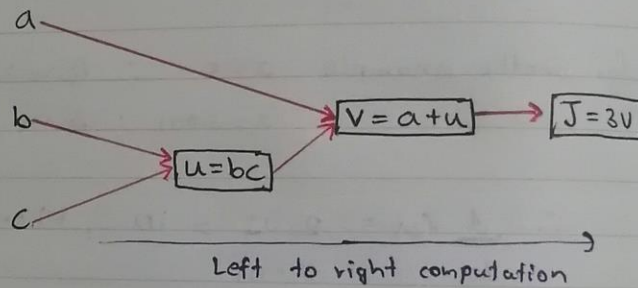 a
b
c
u = bc
V = a+u
J = 3V
Left to right computation